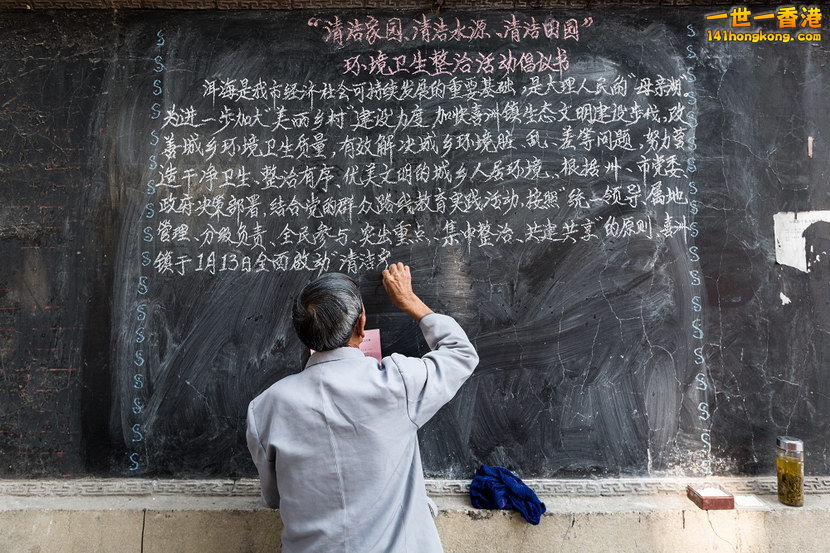 一世一香港
141hongkong.com
“清洁家园、清洁水源、清洁田园”
环境卫生整治活动倡议书
洱海是我市经济社会可持续发展的重要基础,是大理人民的“母亲湖”
为进一步加大“美丽乡村”建设力度,加快喜洲镇生态文明建设步伐,改
善城乡环境卫生质量,有效解决城乡环境脏、乱、差等问题,努力营
造干净卫生、整治有序、优美文明的城乡人居环境、根据州、市党委、
政府决策部署,结合党的群众路线教育实践活动,按照“统一领导、属地
管理、分级负责、全民参与、突出重点、集中整治、共建共享”的原则,喜洲
镇于1月13日全面启动“清洁家